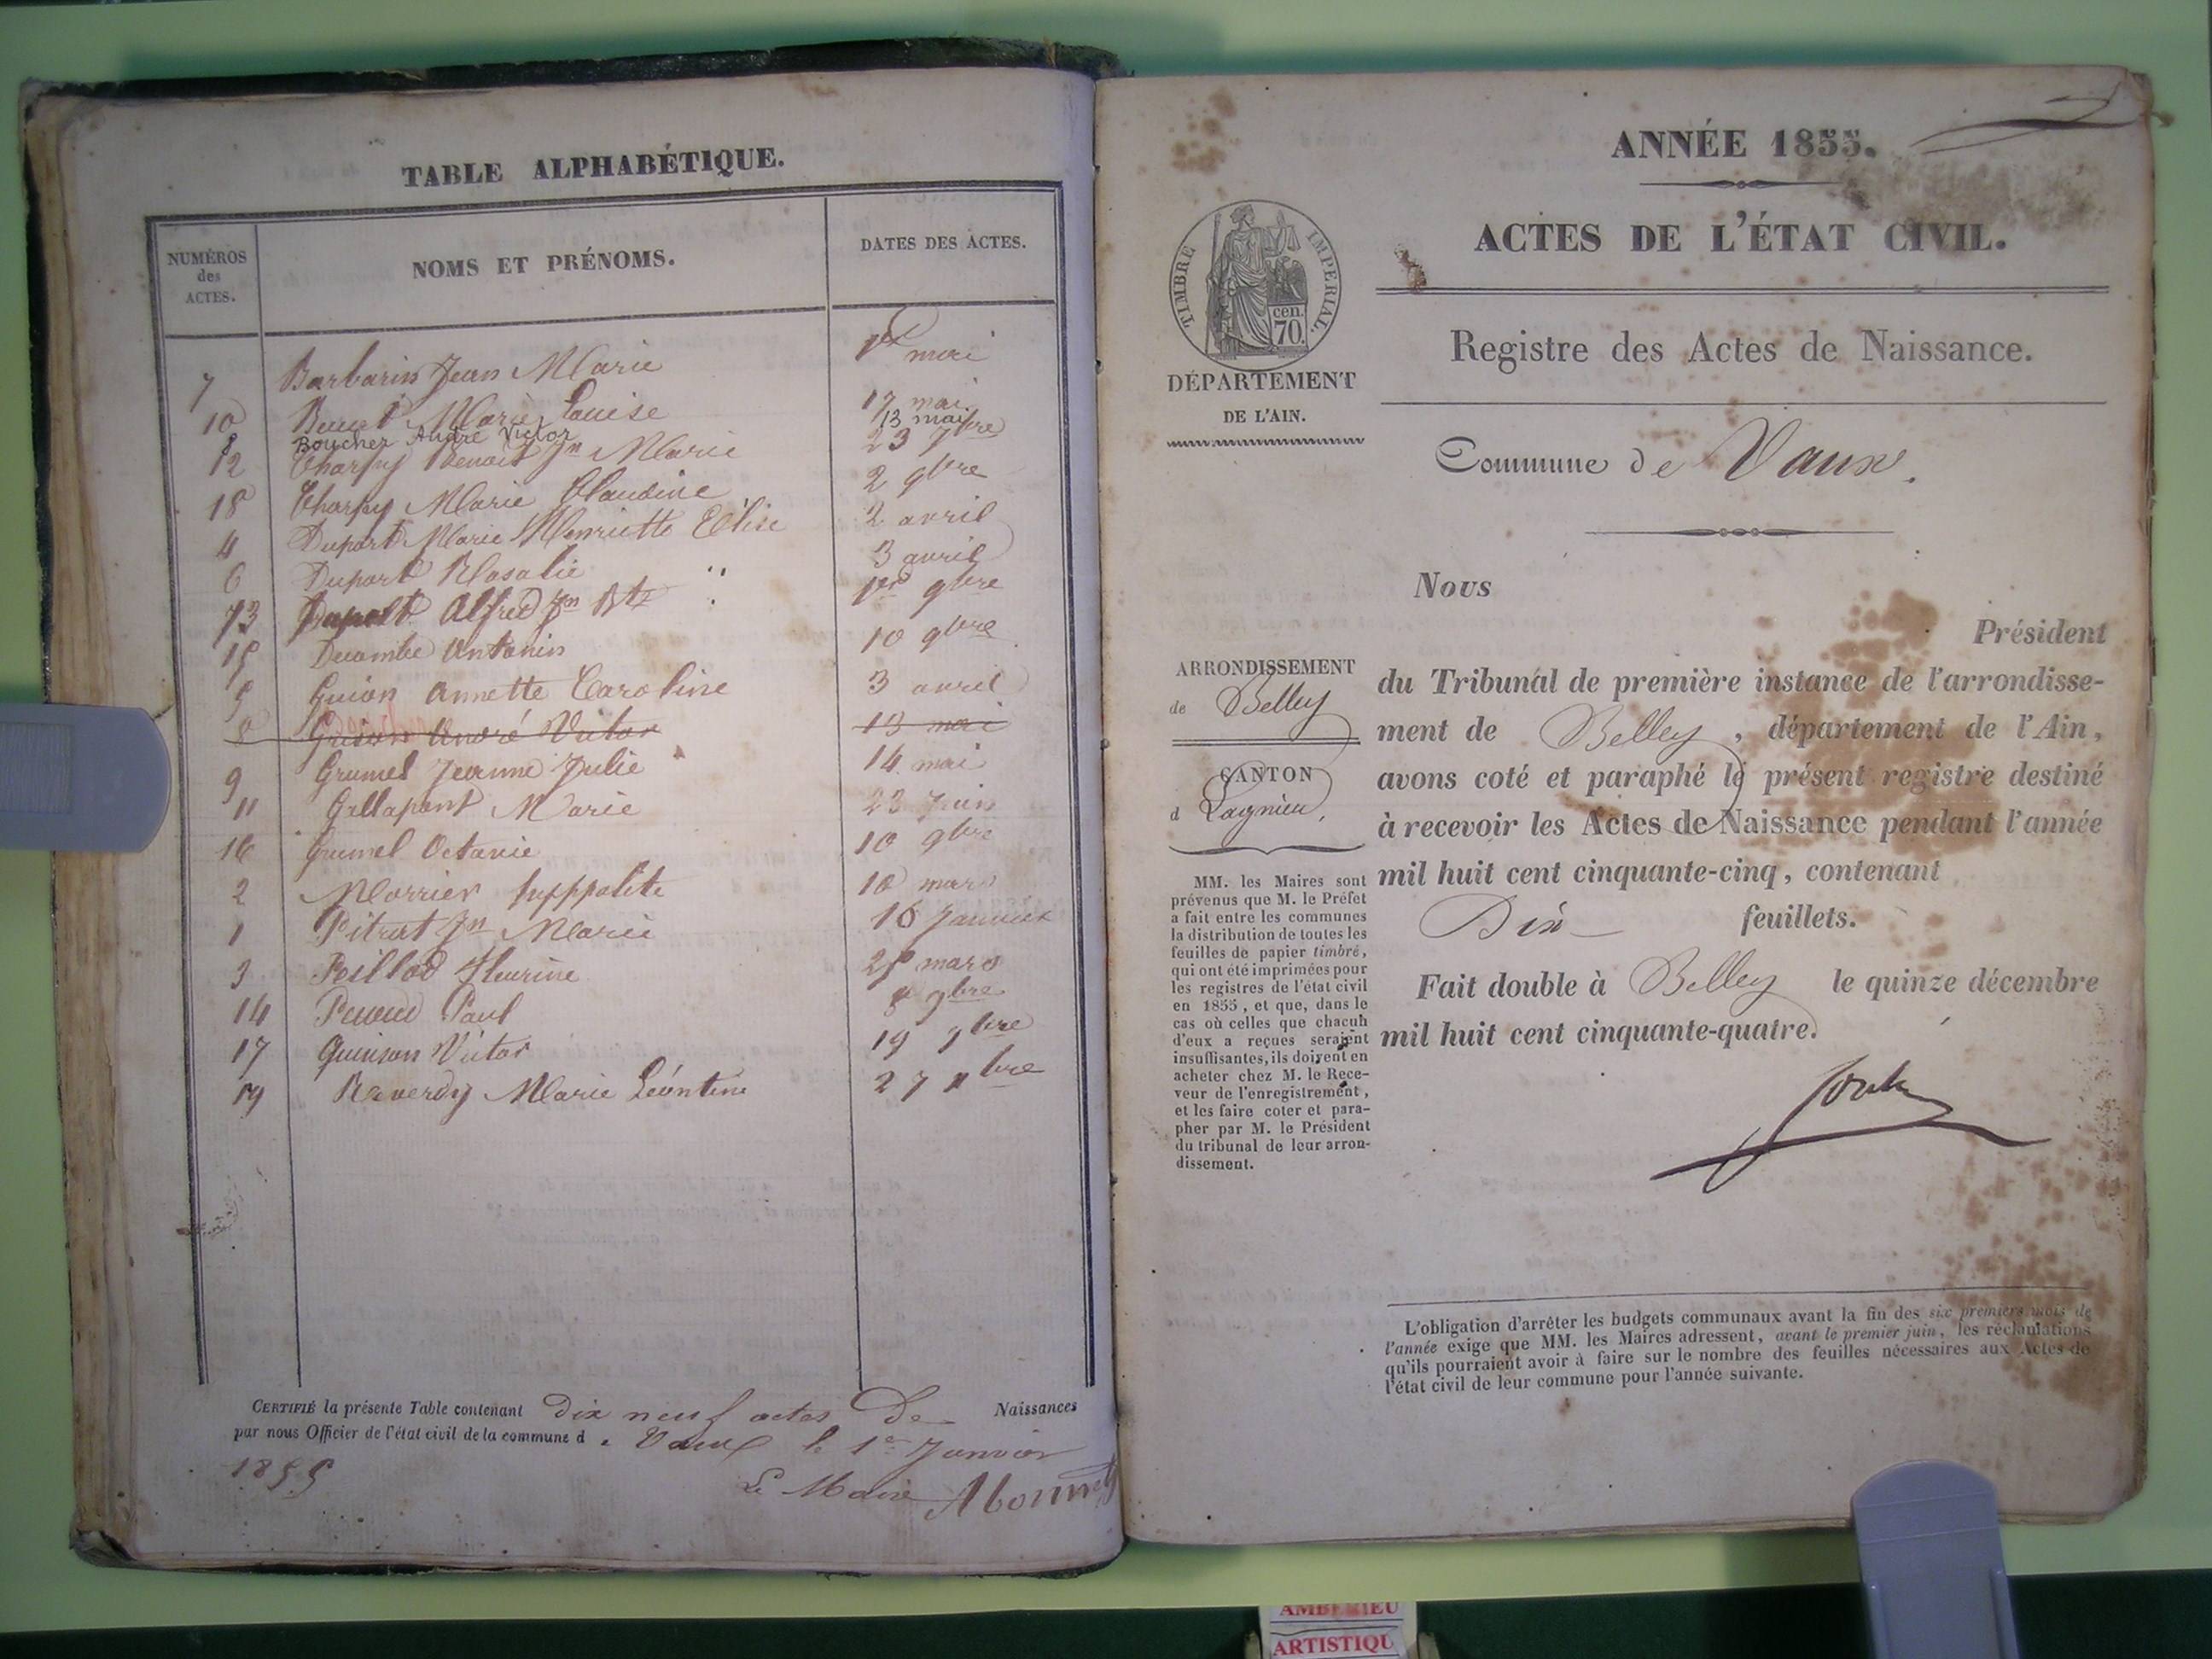 TABLE ALPHABÉTIQUE.
NUMÉROS des ACTES.
NOMS ET PRÉNOMS.
DATES DES ACTES.
7 Barbarin Jean Marie 1er mai
10 Marie Louise 17 mai
8 Boucher André Victor 13 mai
12 Charpy Benoit Jn Marie 23 7bre
18 Charpy Marie Claudine 2 9bre
4 Duport Marie Henriette Elise 2 avril
6 Duport Rosalie " 3 avril
13 Duport Alfred Jn Bte 1er 9bre
15 Decombe Antonin 10 9bre
5 Guion Annette Caroline 3 avril
8 André Victor 13 mai
9 Grumel Jeanne Julie 14 mai
11 Gallapont Marie 23 Juin
16 Grumel Octavie 10 9bre
2 Morrier hypppolite 10 mars
1 Pitrat Jn Marie 16 Janvier
3 Peillod Fleurine mars
14 Paul 9bre
17 Quinson Victor 19 9bre
19 Raverdy Marie Léontine 27 bre
CERTIFIÉ la présente Table contenant dix neuf actes de Naissances
par nous Officier de l'état civil de la commune d e Vaux le 1er Janvier
1855
Le Maire
ANNÉE 1855.
ACTES DE L'ÉTAT CIVIL.
TIMBRE IMPERIAL.
cen.
70.
DÉPARTEMENT
DE L'AIN.
Registre des Actes de Naissance.
Commune de Vaux.
Nous
Président
ARRONDISSEMENT
de Belley
CANTON
d Lagnieu.
du Tribunal de première instance de l'arrondisse-
ment de Belley, département de l'Ain,
avons coté et paraphé le présent registre destiné
à recevoir les Actes de Naissance pendant l'année
mil huit cent cinquante-cinq, contenant
Dix feuillets.
Fait double à Belley le quinze décembre
mil huit cent cinquante-quatre.
MM. les Maires sont
prévenus que M. le Préfet
a fait entre les communes
la distribution de toutes les
feuilles de papier timbré,
qui ont été imprimées pour
les registres de l'état civil
en 1855, et que, dans le
cas où celles que chacun
d'eux a reçues seraient
insuffisantes, ils doivent en
acheter chez M. le Rece-
veur de l'enregistrement,
et les faire coter et para-
pher par M. le Président
du tribunal de leur arron-
dissement.
L'obligation d'arrêter les budgets communaux avant la fin des six premiers mois de
l'année exige que MM. les Maires adressent, avant le premier juin, les réclamations
qu'ils pourraient avoir à faire sur le nombre des feuilles nécessaires aux Actes de
l'état civil de leur commune pour l'année suivante.
AMBERIEU
ARTISTIQU